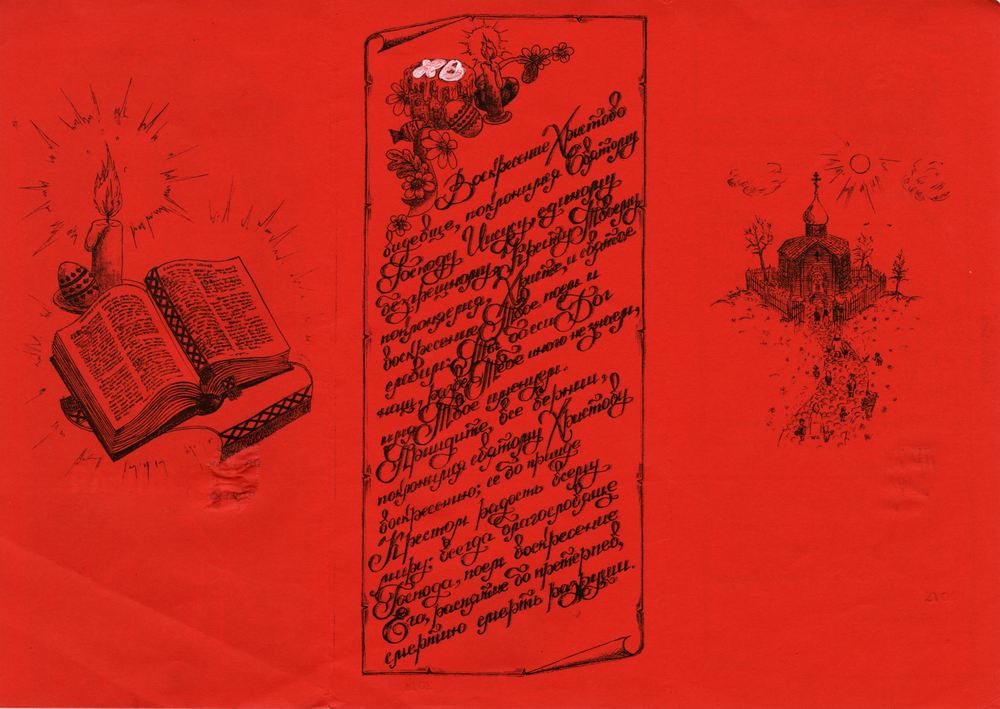 ХВ
Воскресение Христово
видевше, поклонимся Святому
Господу Иисусу, единому
безгрешному. Кресту Твоему
поклоняемся, Христе, и святое
воскресение Твое поем и
славим: Ты бо еси Бог
наш, разве Тебе иного не знаем,
имя Твое именуем.
Приидите, все вернии,
поклонимся святому Христову
воскресению; се бо прииде
Крестом радость всему
миру; всегда благословяще
Господа, поем воскресение
Его, распятие бо претерпев,
смертию смерть разруши.